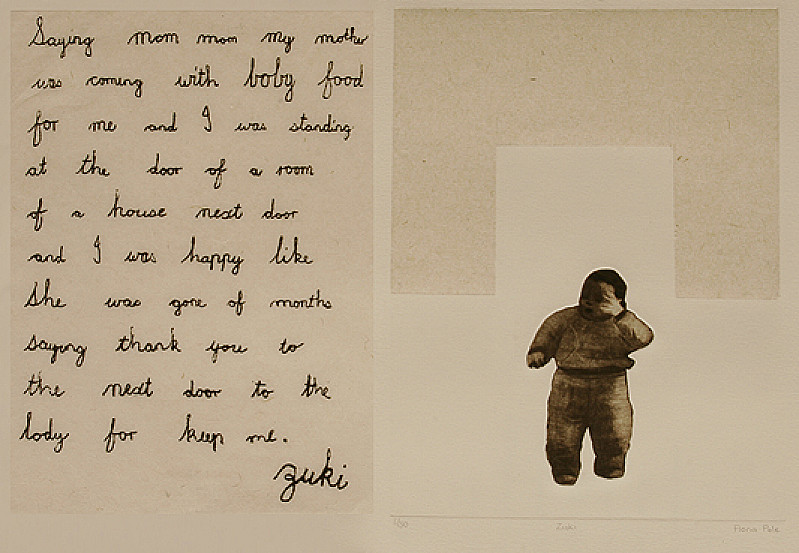 Saying mom mom my mother
was coming with boby food
for me and I was standing
at the door of a room
of a house next door
and I was happy like
She was gone of months
saying thank you to
the next door to the
lody for keep me.
Zuki
Zuki